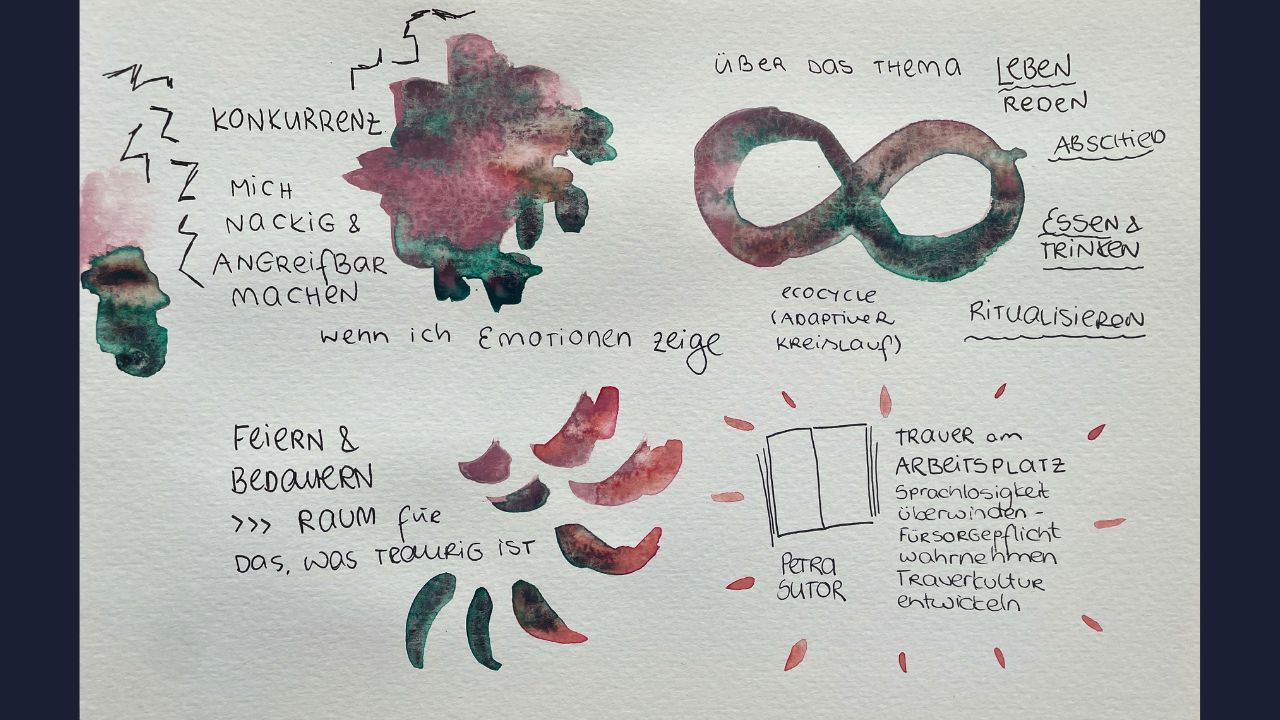 KONKURRENZ
MICH
NACKIG &
ANGREIFBAR
MACHEN
WENN ICH EMOTIONEN ZEIGE
ÜBER DAS THEMA LEBEN
REDEN
ABSCHIED
ESSEN &
TRINKEN
RITUALISIEREN
ECOCYCLE
(ADAPTIVER
KREISLAUF)
FEIERN &
BEDAUERN
>>> RAUM FÜR
DAS, WAS TRAURIG IST
PETRA
SUTOR
TRAUER AM
ARBEITSPLATZ
Sprachlosigkeit
überwinden -
FÜRSORGEPFLICHT
wahrnehmen
Trauerkultur
entwickeln